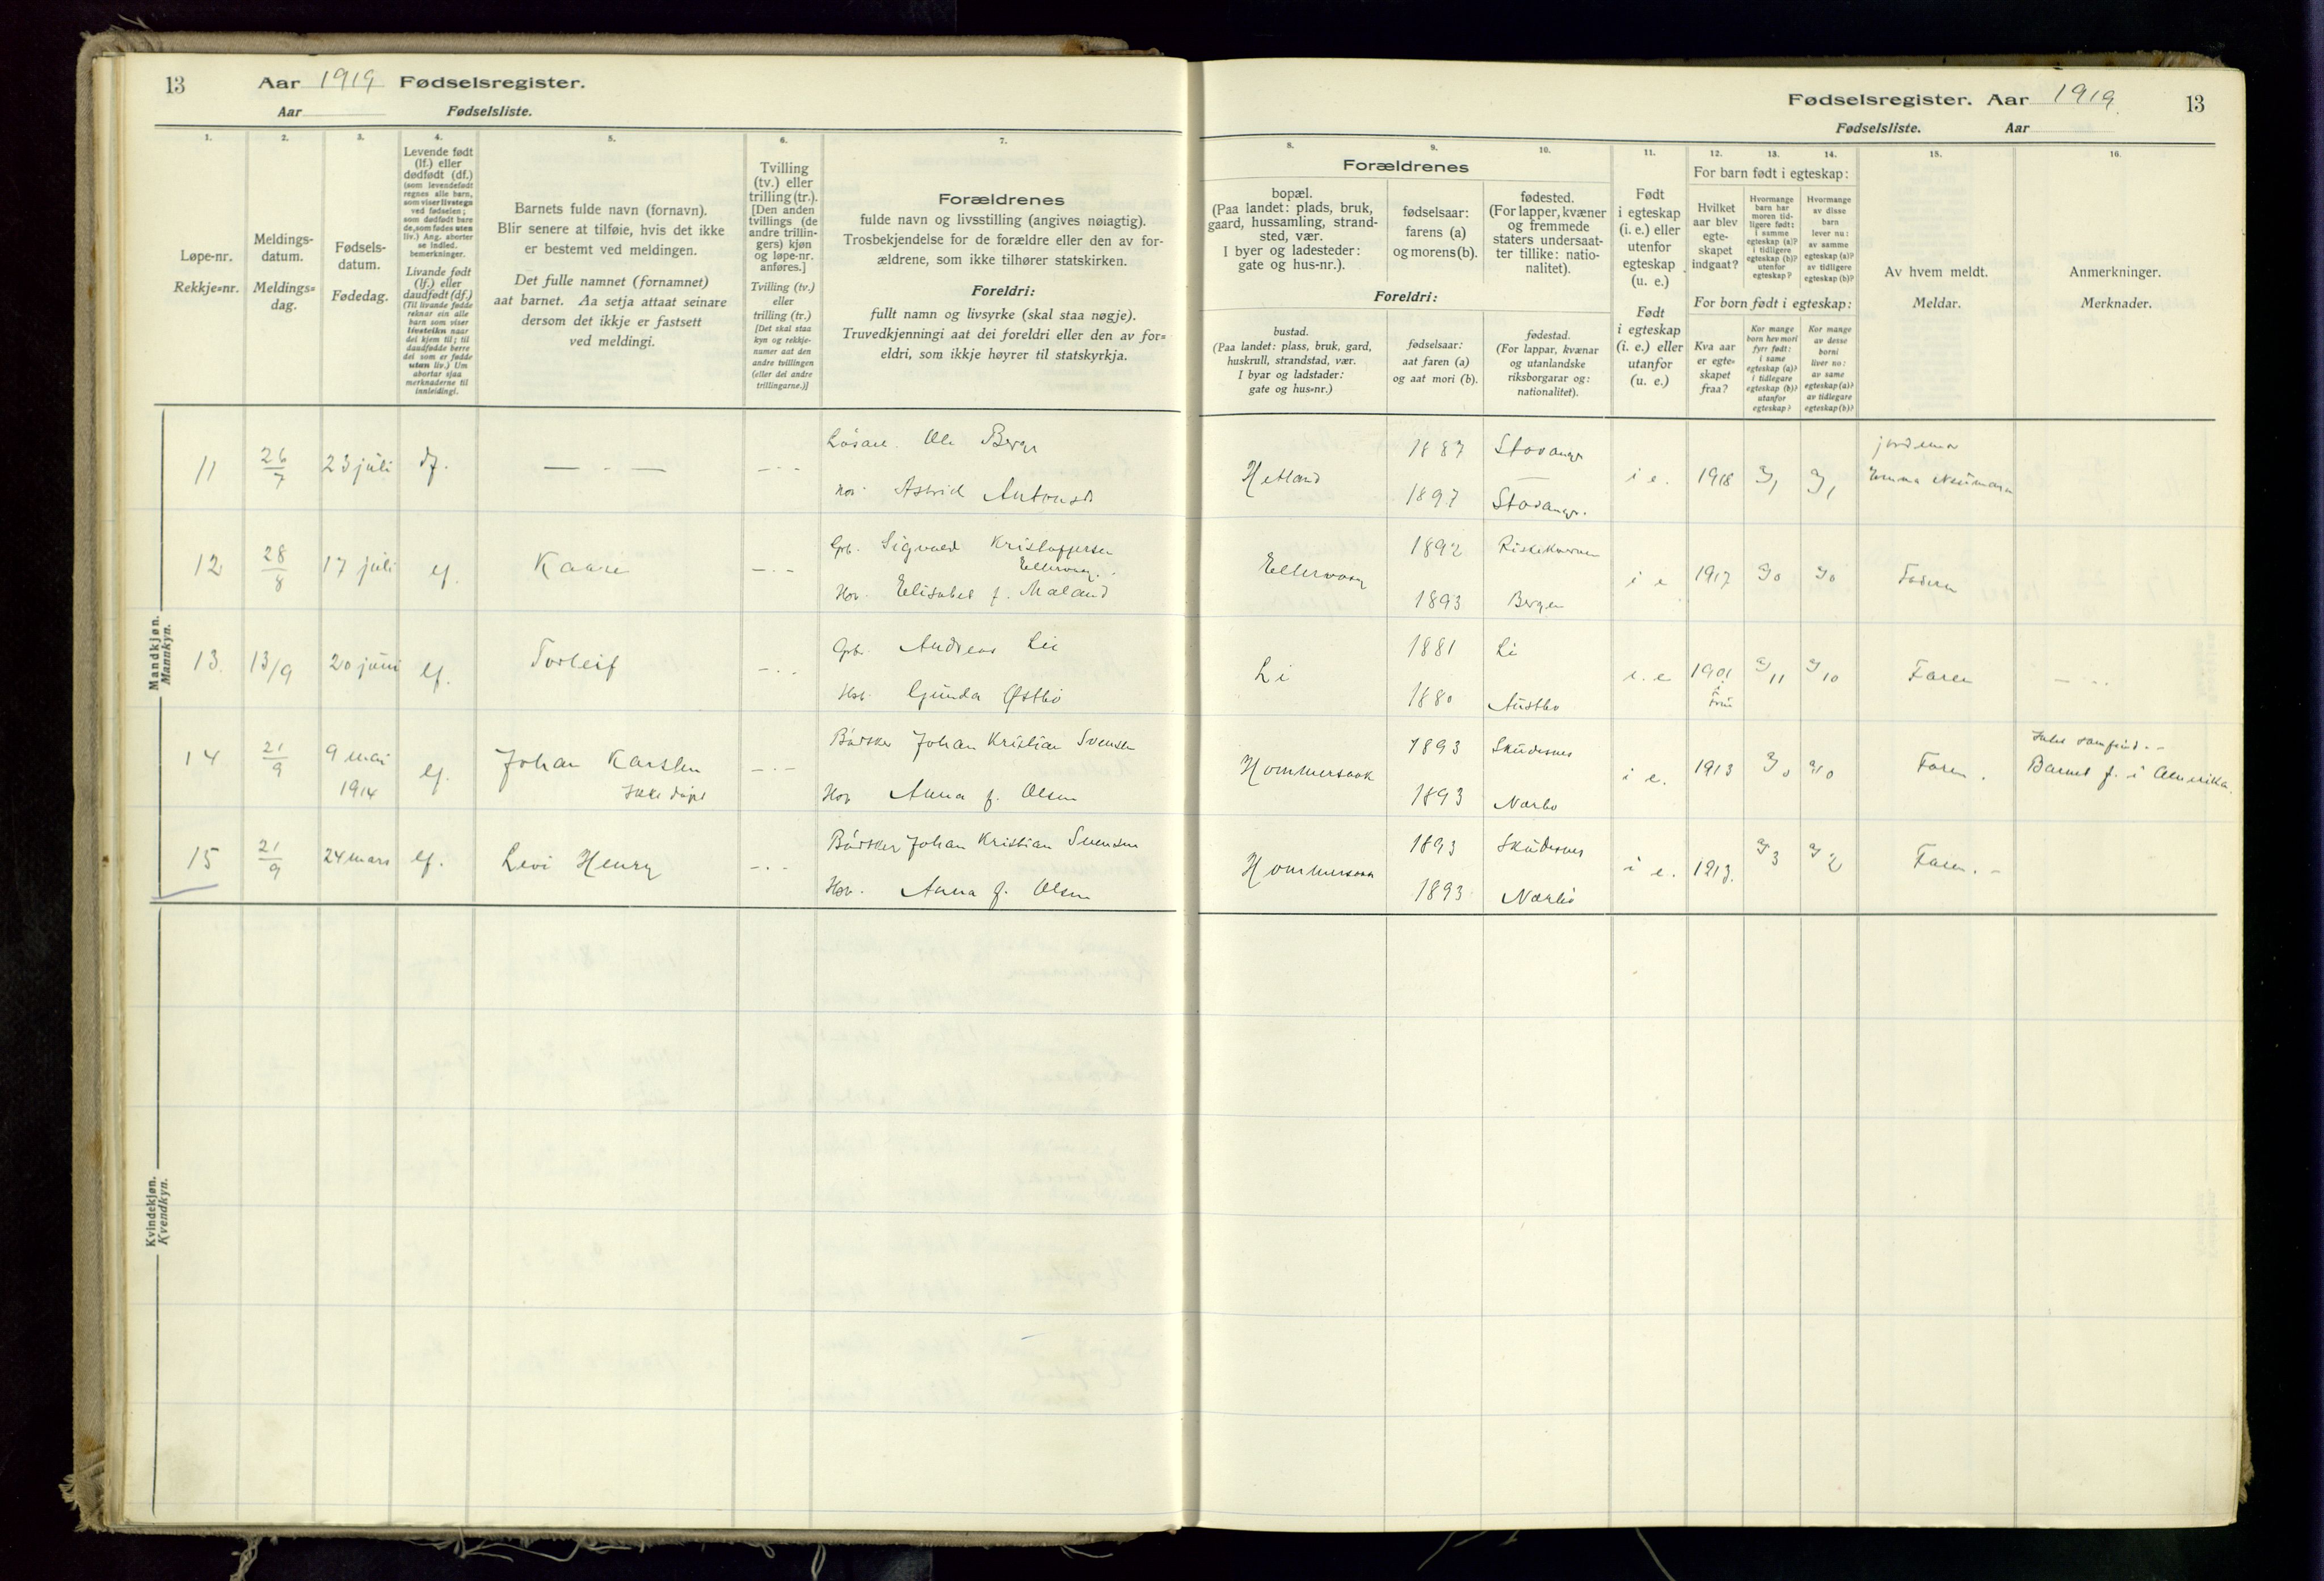 13 Aar 1919 Fødselsregister.
Aar Fødselsliste.
1. 2. 3. 4. 5. 6. 7.
Løpe-nr.
Rekkje=nr.
Meldings-
datum.
Meldings=
dag.
Fødsels-
datum.
Fødedag.
Levende født
(lf.) eller
dødfødt (df.)
(som levendefødt
regnes alle barn,
som viser livstegn
ved fødselen;
som dødfødt bare
de, som fødes uten
liv.) Ang. aborter
se indled.
bemerkninger.
Livande født
(lf.) eller
daudfødt (df.)
(Til livande fødde
reknar ein alle
barn som viser
livsteikn naar
dei kjem til; til
daudfødde berre
dei som er fødde
utan liv.) Um
abortar sjaa
merknaderne til
innleidingi.
Barnets fulde navn (fornavn).
Blir senere at tilføie, hvis det ikke
er bestemt ved meldingen.
Det fulle namnet (fornamnet)
aat barnet. Aa setja attaat seinare
dersom det ikkje er fastsett
ved meldingi.
Tvilling
(tv.) eller
trilling (tr.).
[Den anden
tvillings (de
andre trillin-
gers) kjøn
og løpe-nr.
anføres.]
Tvilling (tv.)
eller
trilling (tr.)
[Det skal staa
kyn og rekkje-
numer aat den
andre tvillingen
(eller dei andre
trillingarne.)]
Forældrenes
fulde navn og livsstilling (angives nøiagtig).
Trosbekjendelse for de forældre eller den av for-
ældrene, som ikke tilhører statskirken.
Foreldri:
fullt namn og livsyrke (skal staa nøgje).
Truvedkjenningi aat dei foreldri eller den av for=
eldri, som ikkje høyrer til statskyrkja.
Mandkjøn.
Mannkyn.
11 26/7 23 juli df. — . — - . -
Ole Berge
Astrid
12 28/8 17 juli lf. Kaare — . —
Gbr. Sigvald Kristoffersen
Ellevaag
Elisabet f. Maland
13. 13/9 20 juni lf. Torleif - . .
Gbr. Andreas Lie
Gunda Østbø
14 21/9 9 mai
1914 lf. Johan Karsten
Ikke døpt — . —
Johan Kristian Svensen
Anna f. Olsen
15 21/9 24 mars lf. Levi Henry - . -
Johan Kristian Svensen
Anna f. Olsen
Kvindekjøn.
Kvendkyn.
Fødselsregister. Aar 1919 13
Fødselsliste. Aar
8. 9. 10. 11. 12. 13. 14. 15. 16.
Forældrenes
bopæl.
(Paa landet: plads, bruk,
gaard, hussamling, strand-
sted, vær.
I byer og ladesteder:
gate og hus-nr.).
fødselsaar:
farens (a)
og morens (b).
fødested.
(For lapper, kvæner
og fremmede
staters undersaat-
ter tillike: natio-
nalitet).
Foreldri:
bustad.
(Paa landet: plass, bruk, gard,
huskrull, strandstad, vær.
I byar og ladstader:
gate og hus=nr.)
fødselsaar:
aat faren (a)
og aat mori (b).
fødestad.
(For lappar, kvænar
og utanlandske
riksborgarar og:
nationalitet).
Født
i egteskap
(i. e.) eller
utenfor
egteskap
(u. e.)
Født
i egteskap
(i. e.) eller
utanfor
(u. e.)
For barn født i egteskap:
Hvilket
aar blev
egte-
skapet
indgaat?
Hvormange
barn har
moren tid-
ligere født:
i samme
egteskap (a)?
i tidligere
egteskap (b)?
utenfor
egteskap?
Hvormange
av disse
barn
lever nu:
av samme
egteskap (a)?
av tidligere
egteskap (b)?
For born født i egteskap:
Kva aar
er egte-
skapet
fraa?
Kor mange
born hev mori
fyrr født:
i same
egteskap (a)?
i tidlegare
egteskap (b)?
utanfor
egteskap?
Kor mange
av desse
borni
liver no:
av same
egteskap (a)?
av tidlegare
egteskap (b)?
Av hvem meldt.
Meldar.
Anmerkninger.
Merknader.
Hetland 1887 Stavanger i e. 1918 jordemor
1897 Stavanger. Emma
Ellevaag 1892 i e 1917 Faderen
1893 Bergen
Li 1881 Li i. e 1901 11 10 Faren
1880 Austbø
Hommersaak 1893 Skudesnes i e. 1913 Faren.
1893 Nærbø
Barnet f. i Amerika.
1893 Skudesnes i e. 1913. 3 2 Faren. -
1893 Nærbø